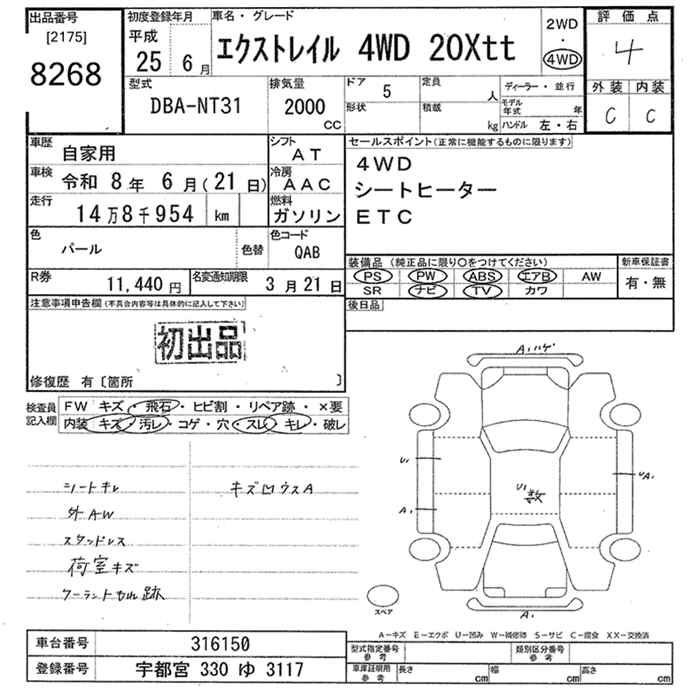 出品番号
[2175]
8268
初度登録年月
平成
25 6月
車名・グレード
エクストレイル 4WD 20Xtt
2WD
・
4WD
評価点
4
外装 内装
C C
型式
DBA-NT31
排気量
2000
CC
ドア 5
形状
定員
人
積載
kg
ディーラー・並行
モデル年式 年
ハンドル 左・右
車歴
自家用
シフト
AT
車検 令和 8年 6月(21日)
冷房
AAC
走行
14万8千954 km
燃料
ガソリン
色
パール
色替
色コード
QAB
R券
11,440円
名変通知期限
3月21日
セールスポイント(正常に機能するものに限ります)
4WD
シートヒーター
ETC
装備品 (純正品に限り○をつけてください)
PS PW ABS エアB AW
SR ナビ TV カワ
新車保証書
有・無
後日品
注意事項申告欄(不具合内容等は具体的に記入して下さい)
初出品
修復歴 有〔箇所 〕
検査員
記入欄
FW キズ・飛石・ヒビ割・リペア跡・×要
内装 キズ・汚レ・コゲ・穴・スレ・キレ・破レ
シートキレ
外AW
スタッドレス
荷室キズ
キズ凹ウスA
A1ハゲ
U1
A1
U1数
UA1
A1
スペア
A-キズ E-エクボ U-凹み W-補修跡 S-サビ C-腐食 XX-交換済
車台番号 316150
登録番号 宇都宮 330 ゆ 3117
型式指定番号
参考
類別区分番号
参考
車庫証明用
参考
長さ cm
幅 cm
高さ cm